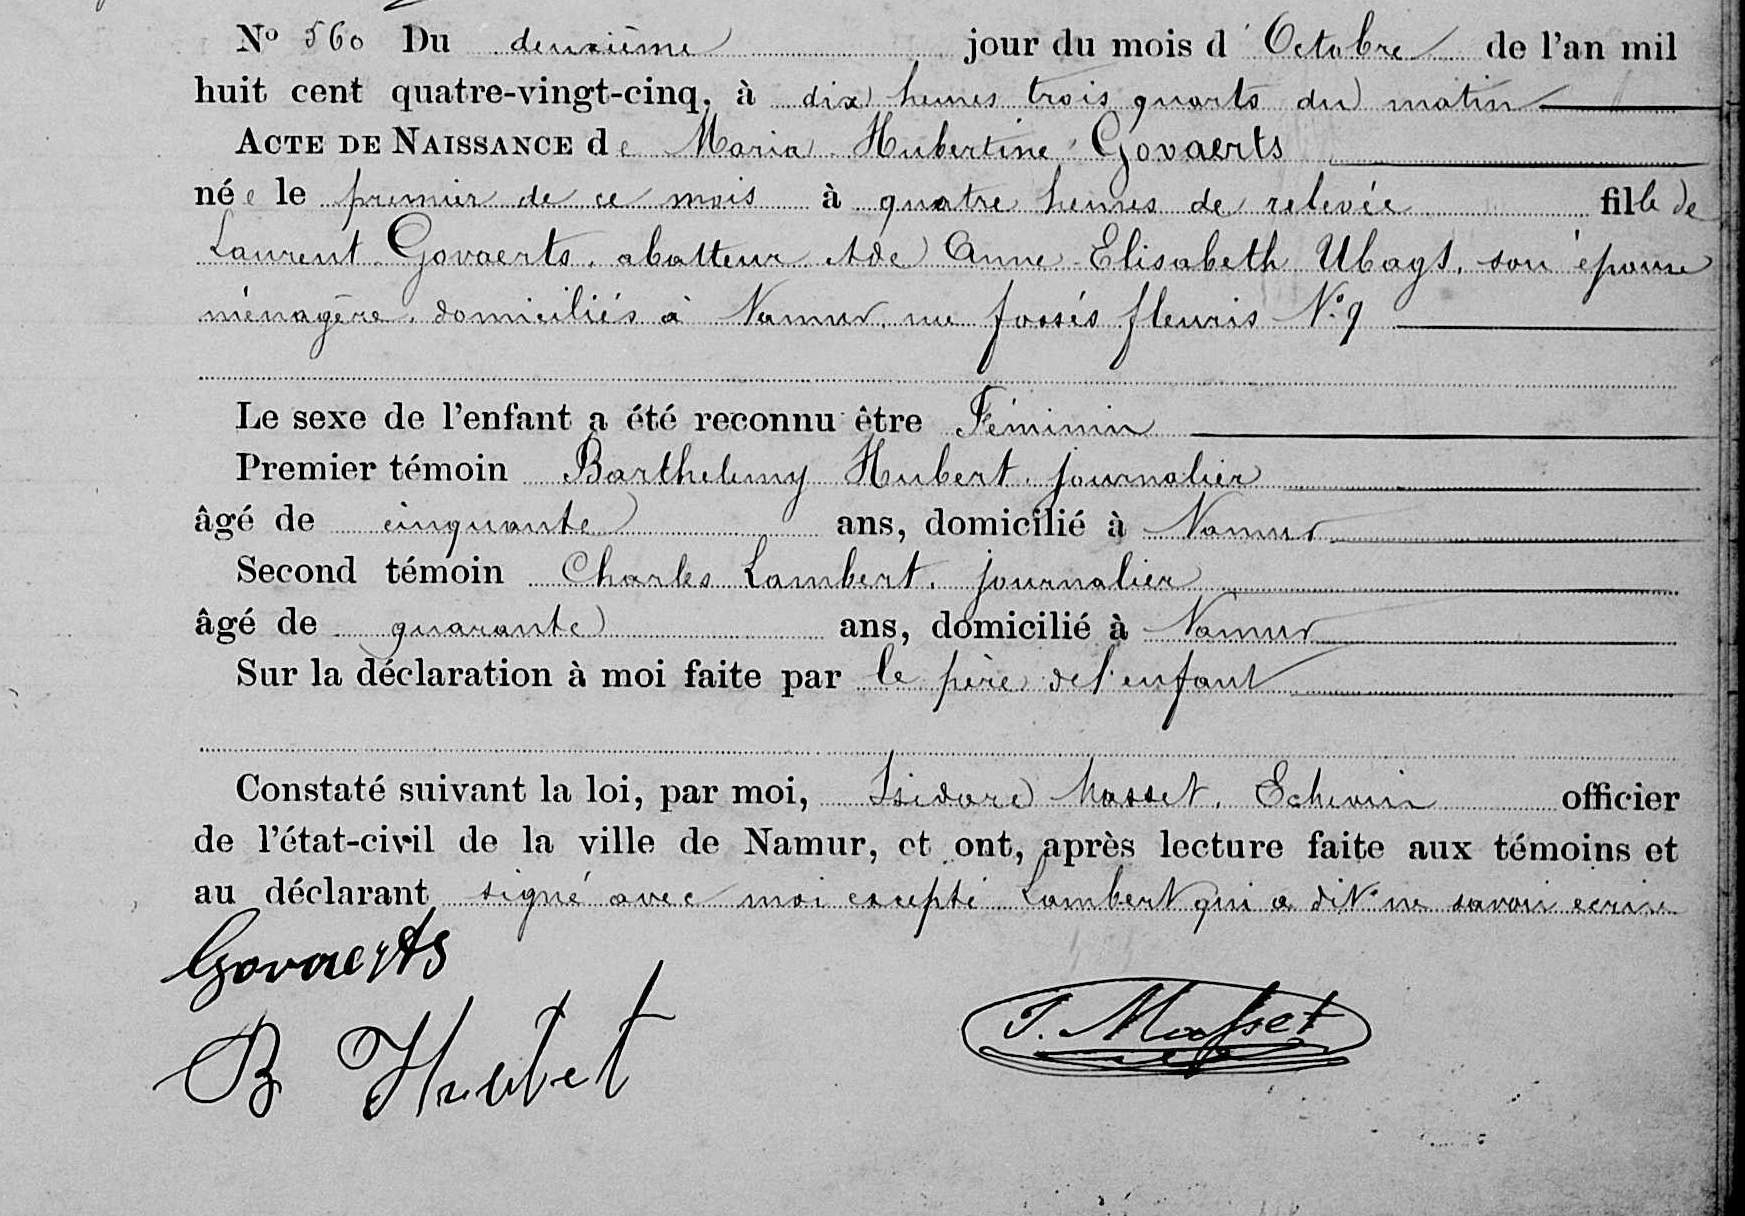 Nº 560 Du deuxième jour du mois d'Octobre de l'an mil
huit cent quatre-vingt-cinq, à dix heures trois quarts du matin
ACTE DE NAISSANCE de Maria Hubertine Govaerts
née le premier de ce mois à quatre heures de relevée fille de
Laurent Govaerts, abatteur et de Anne Elisabeth Ubags, son épouse
ménagère, domiciliés à Namur, rue fossés fleuris Nº 9
Le sexe de l'enfant a été reconnu être Féminin
Premier témoin Barthelemy Hubert, journalier
âgé de cinquante ans, domicilié à Namur
Second témoin Charles Lambert, journalier
âgé de quarante ans, domicilié à Namur
Sur la déclaration à moi faite par le père de l'enfant
Constaté suivant la loi, par moi, Isidore Masset, Echevin officier
de l'état-civil de la ville de Namur, et ont, après lecture faite aux témoins et
au déclarant signé avec moi excepté Lambert qui a dit ne savoir ecrire
Govaerts
B Hubet
I. Masset